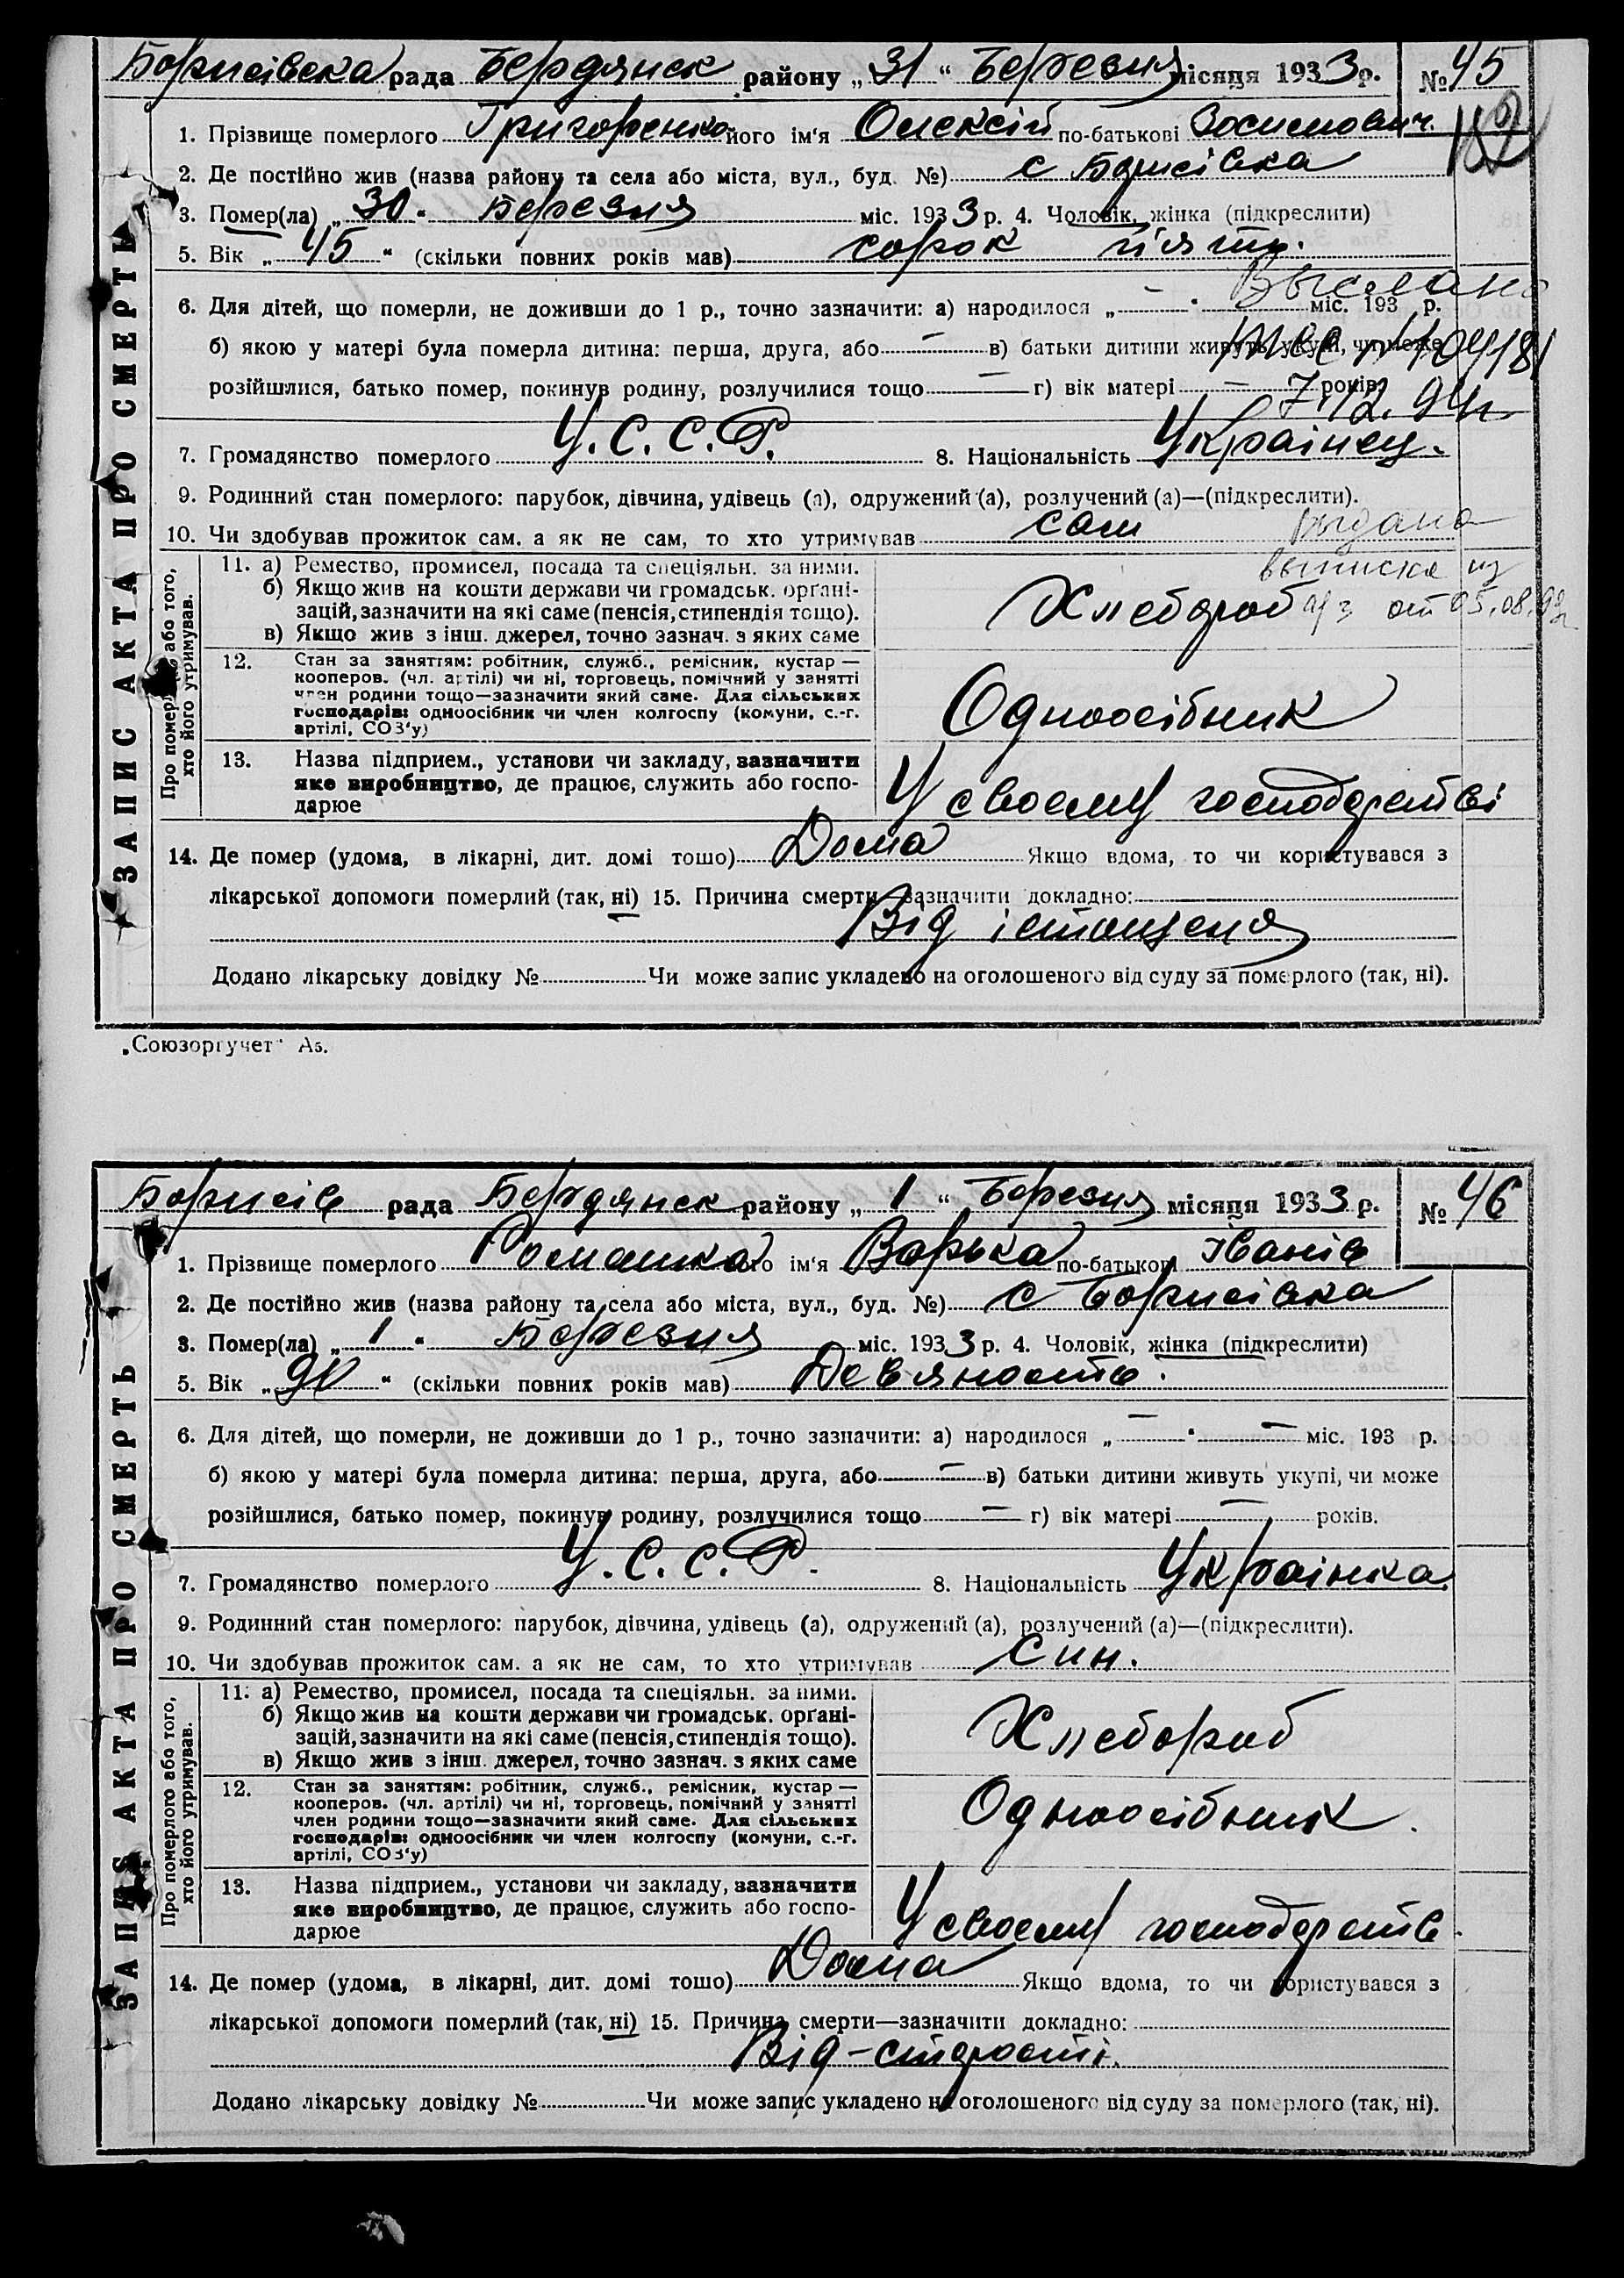 Борисівска рада Бердянск району „31“ Березня місяця 1933 р. № 45
1. Прізвище померлого Григоренко його ім‘я Олексій по-батькові Зосимович.
2. Де постійно жив (назва району та села або міста, вул., буд. №) с Борисівка
3. Помер(ла) „30“ Березня міс. 1933 р. 4. Чоловік, жінка (підкреслити)
5. Вік „45“ (скільки повних років мав) сорок пʼять.
Выслано
6. Для дітей, що померли, не доживши до 1 р., точно зазначити: а) народилося „—“ міс. 193 р.
б) якою у матері була померла дитина: перша, друга, або — в) батьки дитини живуть укупі, чи може
розійшлися, батько помер, покинув родину, розлучилися тощо — г) вік матері — років.
7.12.94г
7. Громадянство померлого У.С.С.Р. 8. Національність Українец.
9. Родинний стан померлого: парубок, дівчина, удівець (а), одружений (а), розлучений (а)—(підкреслити).
10. Чи здобував прожиток сам, а як не сам, то хто утримував сам
выдана
выписка из
а/з от 05.08.99г
ЗАПИС АКТА ПРО СМЕРТЬ
Про померлого або того, хто його утримував.
11. а) Ремество, промисел, посада та спеціяльн. за ними.
б) Якщо жив на кошти держави чи громадськ. органі-
зацій, зазначити на які саме (пенсія, стипендія тощо).
в) Якщо жив з інш. джерел, точно зазнач. з яких саме
Хлебороб
12. Стан за заняттям: робітник, служб., ремісник, кустар —
кооперов. (чл. артілі) чи ні, торговець, помічний у занятті
член родини тощо—зазначити який саме. Для сільських
господарів: одноосібник чи член колгоспу (комуни, с.-г.
артілі, СОЗ‘у)
Одноосібник
13. Назва підприєм., установи чи закладу, зазначити
яке виробництво, де працює, служить або госпо-
дарює
У своему господарстві
14. Де помер (удома, в лікарні, дит. домі тошо) Дома Якщо вдома, то чи користувався з
лікарської допомоги померлий (так, ні) 15. Причина смерти—зазначити докладно:
Від істощеня
Додано лікарську довідку № Чи може запис укладено на оголошеного від суду за померлого (так, ні).
„Союзоргучет“ Аз.
Борисів рада Бердянск району „1“ Березня місяця 1933 р. № 46
1. Прізвище померлого Ромашка його ім‘я Варька по-батькові Іванів
2. Де постійно жив (назва району та села або міста, вул., буд. №) с Борисівка
3. Помер(ла) „1“ Березня міс. 1933 р. 4. Чоловік, жінка (підкреслити)
5. Вік „90“ (скільки повних років мав) Девяность.
6. Для дітей, що померли, не доживши до 1 р., точно зазначити: а) народилося „—“ — міс. 193 р.
б) якою у матері була померла дитина: перша, друга, або — в) батьки дитини живуть укупі, чи може
розійшлися, батько помер, покинув родину, розлучилися тощо — г) вік матері — років.
7. Громадянство померлого У.С.С.Р. 8. Національність Українка
9. Родинний стан померлого: парубок, дівчина, удівець (а), одружений (а), розлучений (а)—(підкреслити).
10. Чи здобував прожиток сам, а як не сам, то хто утримував Син.
ЗАПИС АКТА ПРО СМЕРТЬ
Про померлого або того, хто його утримував.
11. а) Ремество, промисел, посада та спеціяльн. за ними.
б) Якщо жив на кошти держави чи громадськ. органі-
зацій, зазначити на які саме (пенсія, стипендія тощо).
в) Якщо жив з інш. джерел, точно зазнач. з яких саме
Хлебороб
12. Стан за заняттям: робітник, служб., ремісник, кустар —
кооперов. (чл. артілі) чи ні, торговець, помічний у занятті
член родини тощо—зазначити який саме. Для сільських
господарів: одноосібник чи член колгоспу (комуни, с.-г.
артілі, СОЗ‘у)
Одноосібник.
13. Назва підприєм., установи чи закладу, зазначити
яке виробництво, де працює, служить або госпо-
дарює
У своему господарств.
14. Де помер (удома, в лікарні, дит. домі тошо) Дома Якщо вдома, то чи користувався з
лікарської допомоги померлий (так, ні) 15. Причина смерти—зазначити докладно:
Від-старості.
Додано лікарську довідку № Чи може запис укладено на оголошеного від суду за померлого (так, ні).